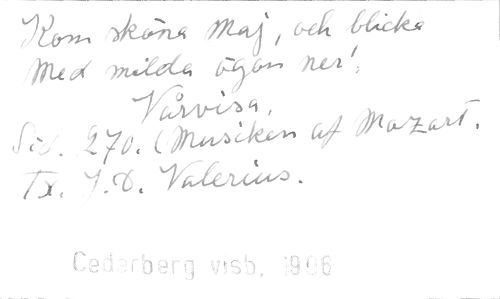 Kom sköna Maj, och blicka
Med milda ögon ner!
Vårvisa.
Sid. 270. (Musiken af Mozart.
Tx. J. D. Valerius.
Cederberg visb, 1906